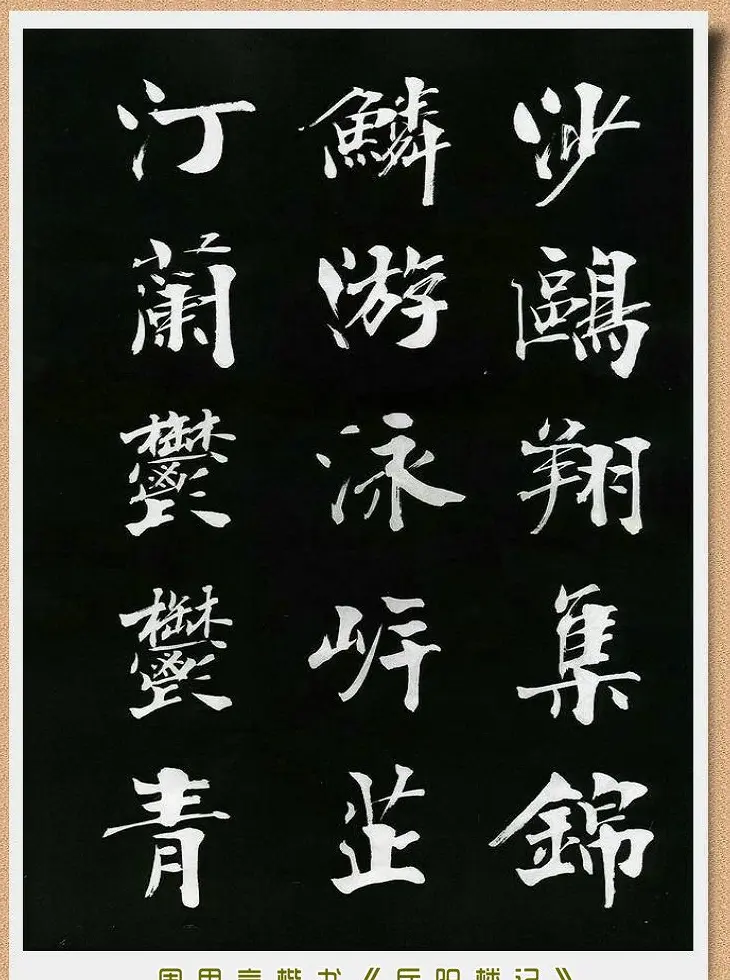 沙鷗翔集錦
鱗游泳岸芷
汀蘭鬱鬱青
楷书《岳阳楼记》